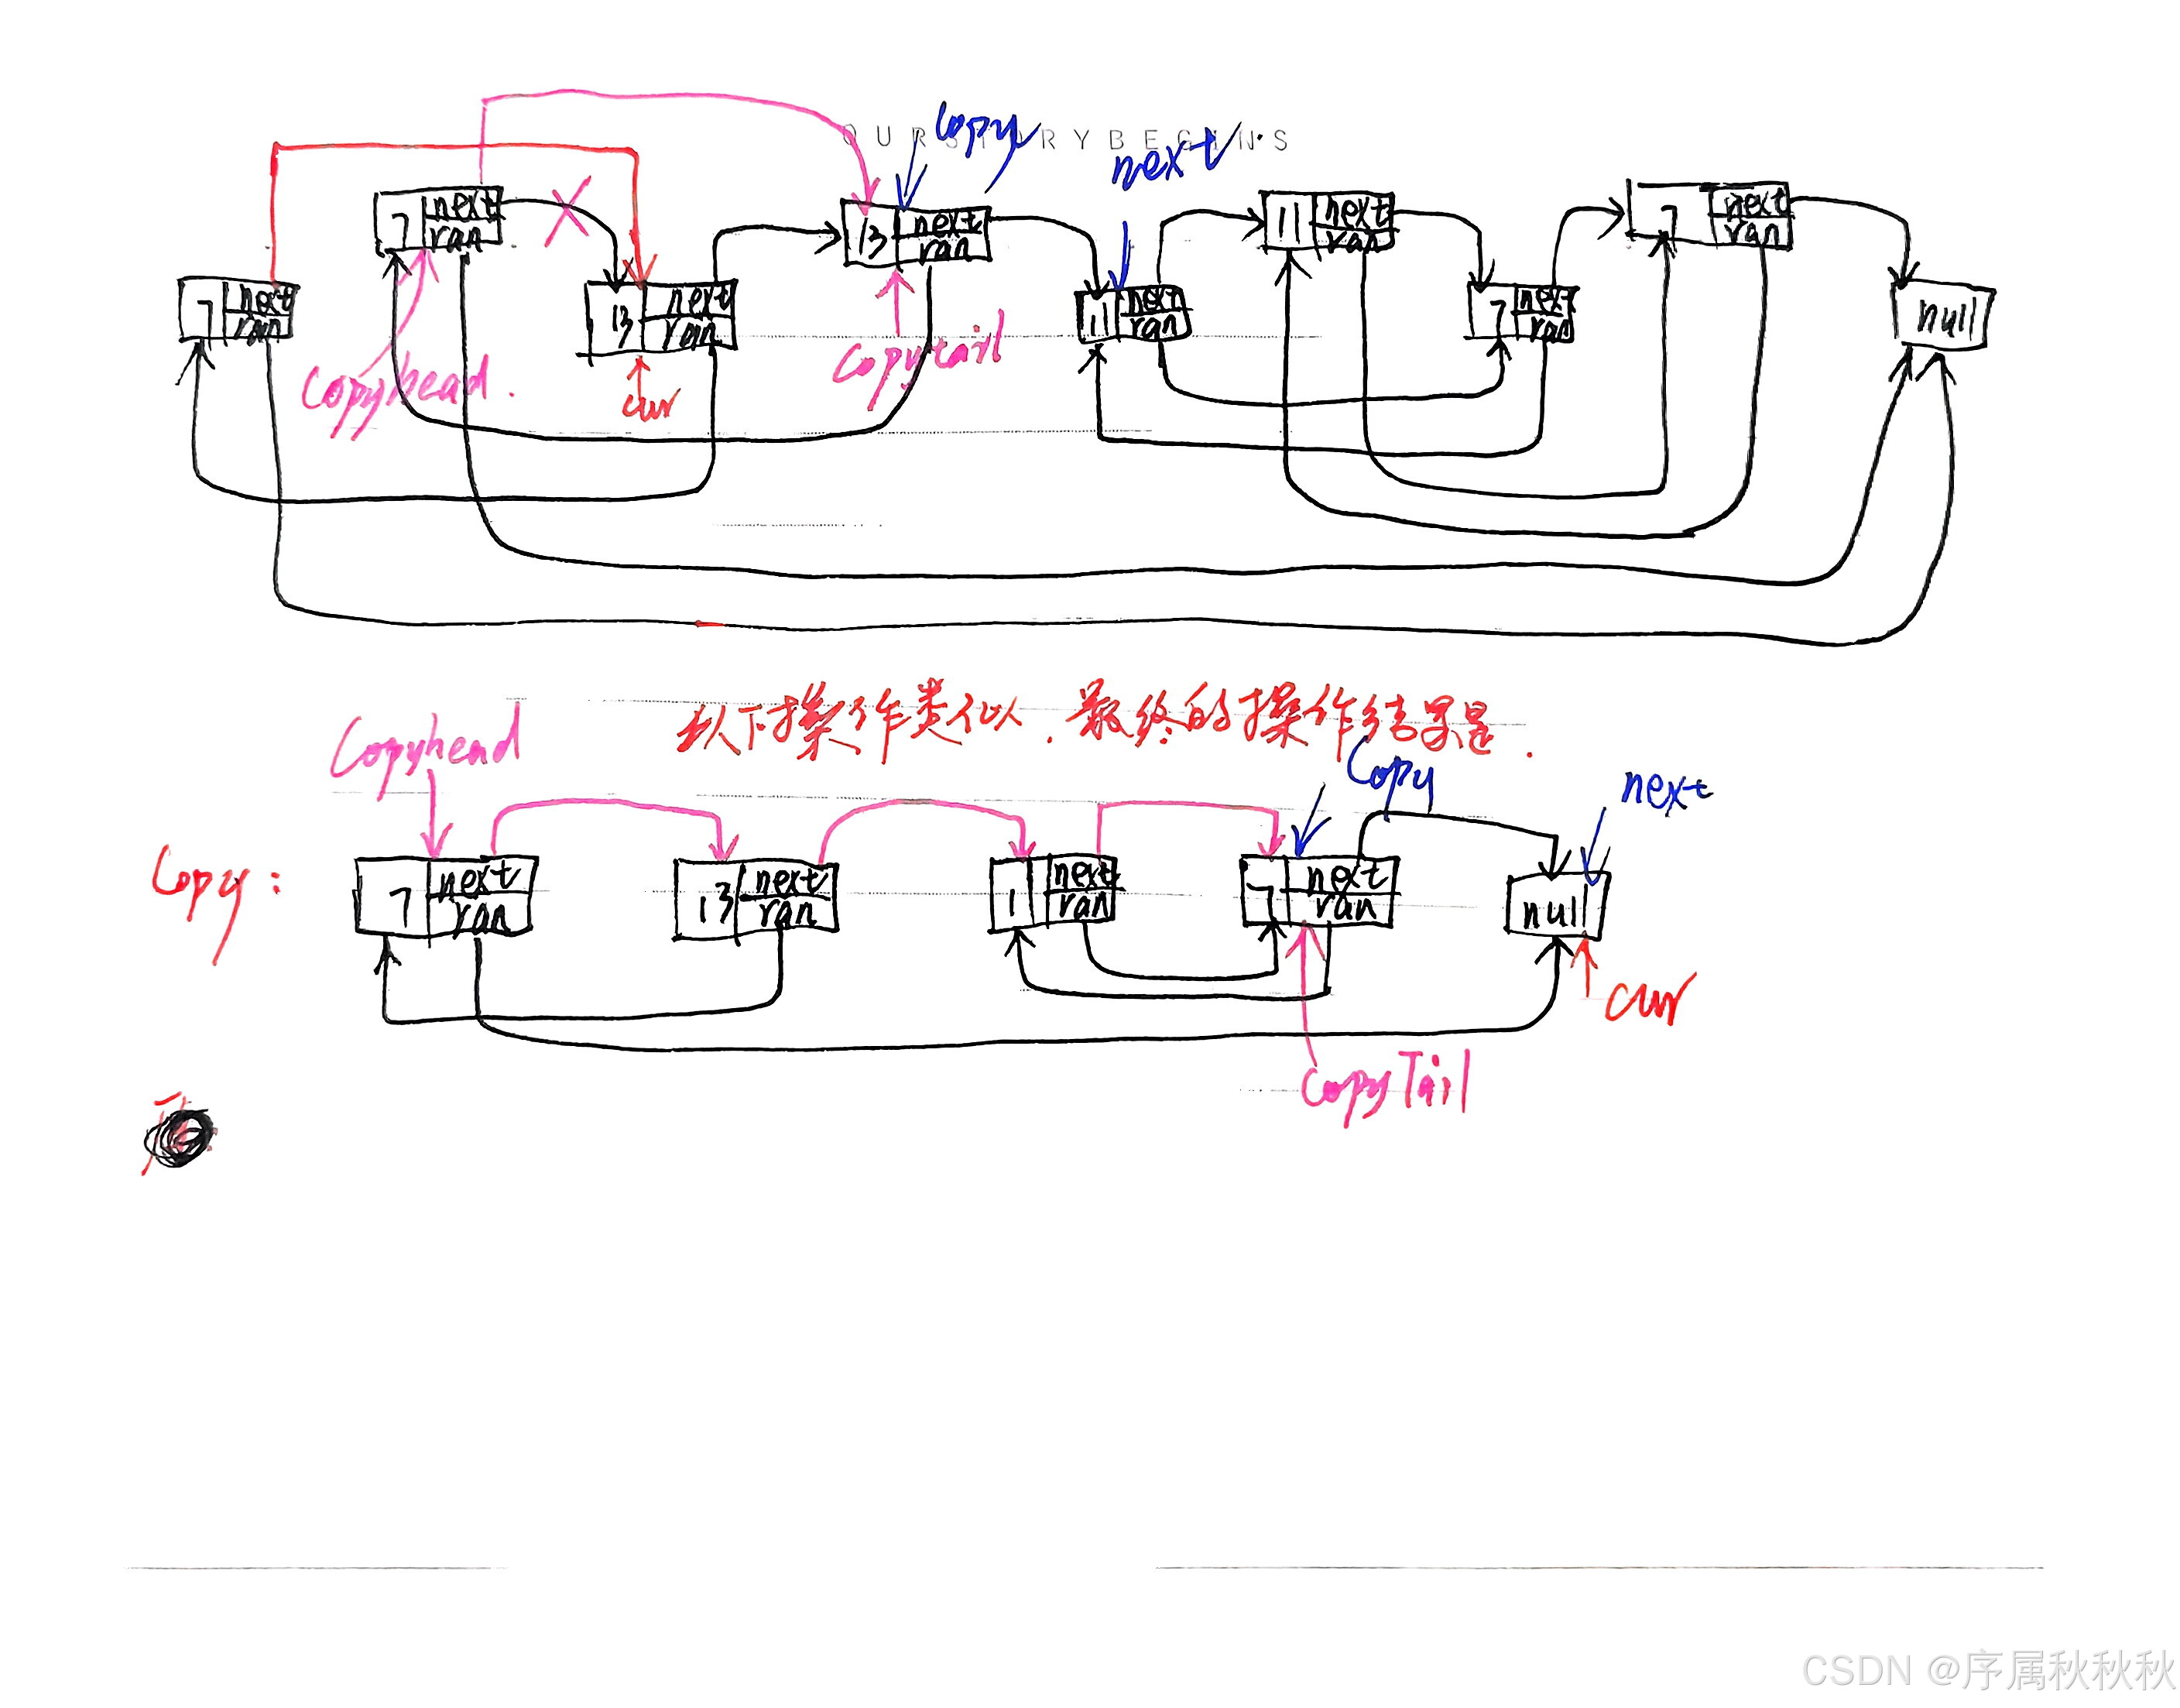 OURSTORYBEGINS
Copy
next
7 next ran
13 next ran
11 next ran
7 next ran
7 next ran
13 next ran
11 next ran
7 next ran
null
Copyhead.
cur
Copytail
以下操作类似.最终的操作结果是.
Copyhead
Copy
next
Copy:
7 next ran
13 next ran
11 next ran
7 next ran
null
cur
CopyTail
CSDN @序属秋秋秋